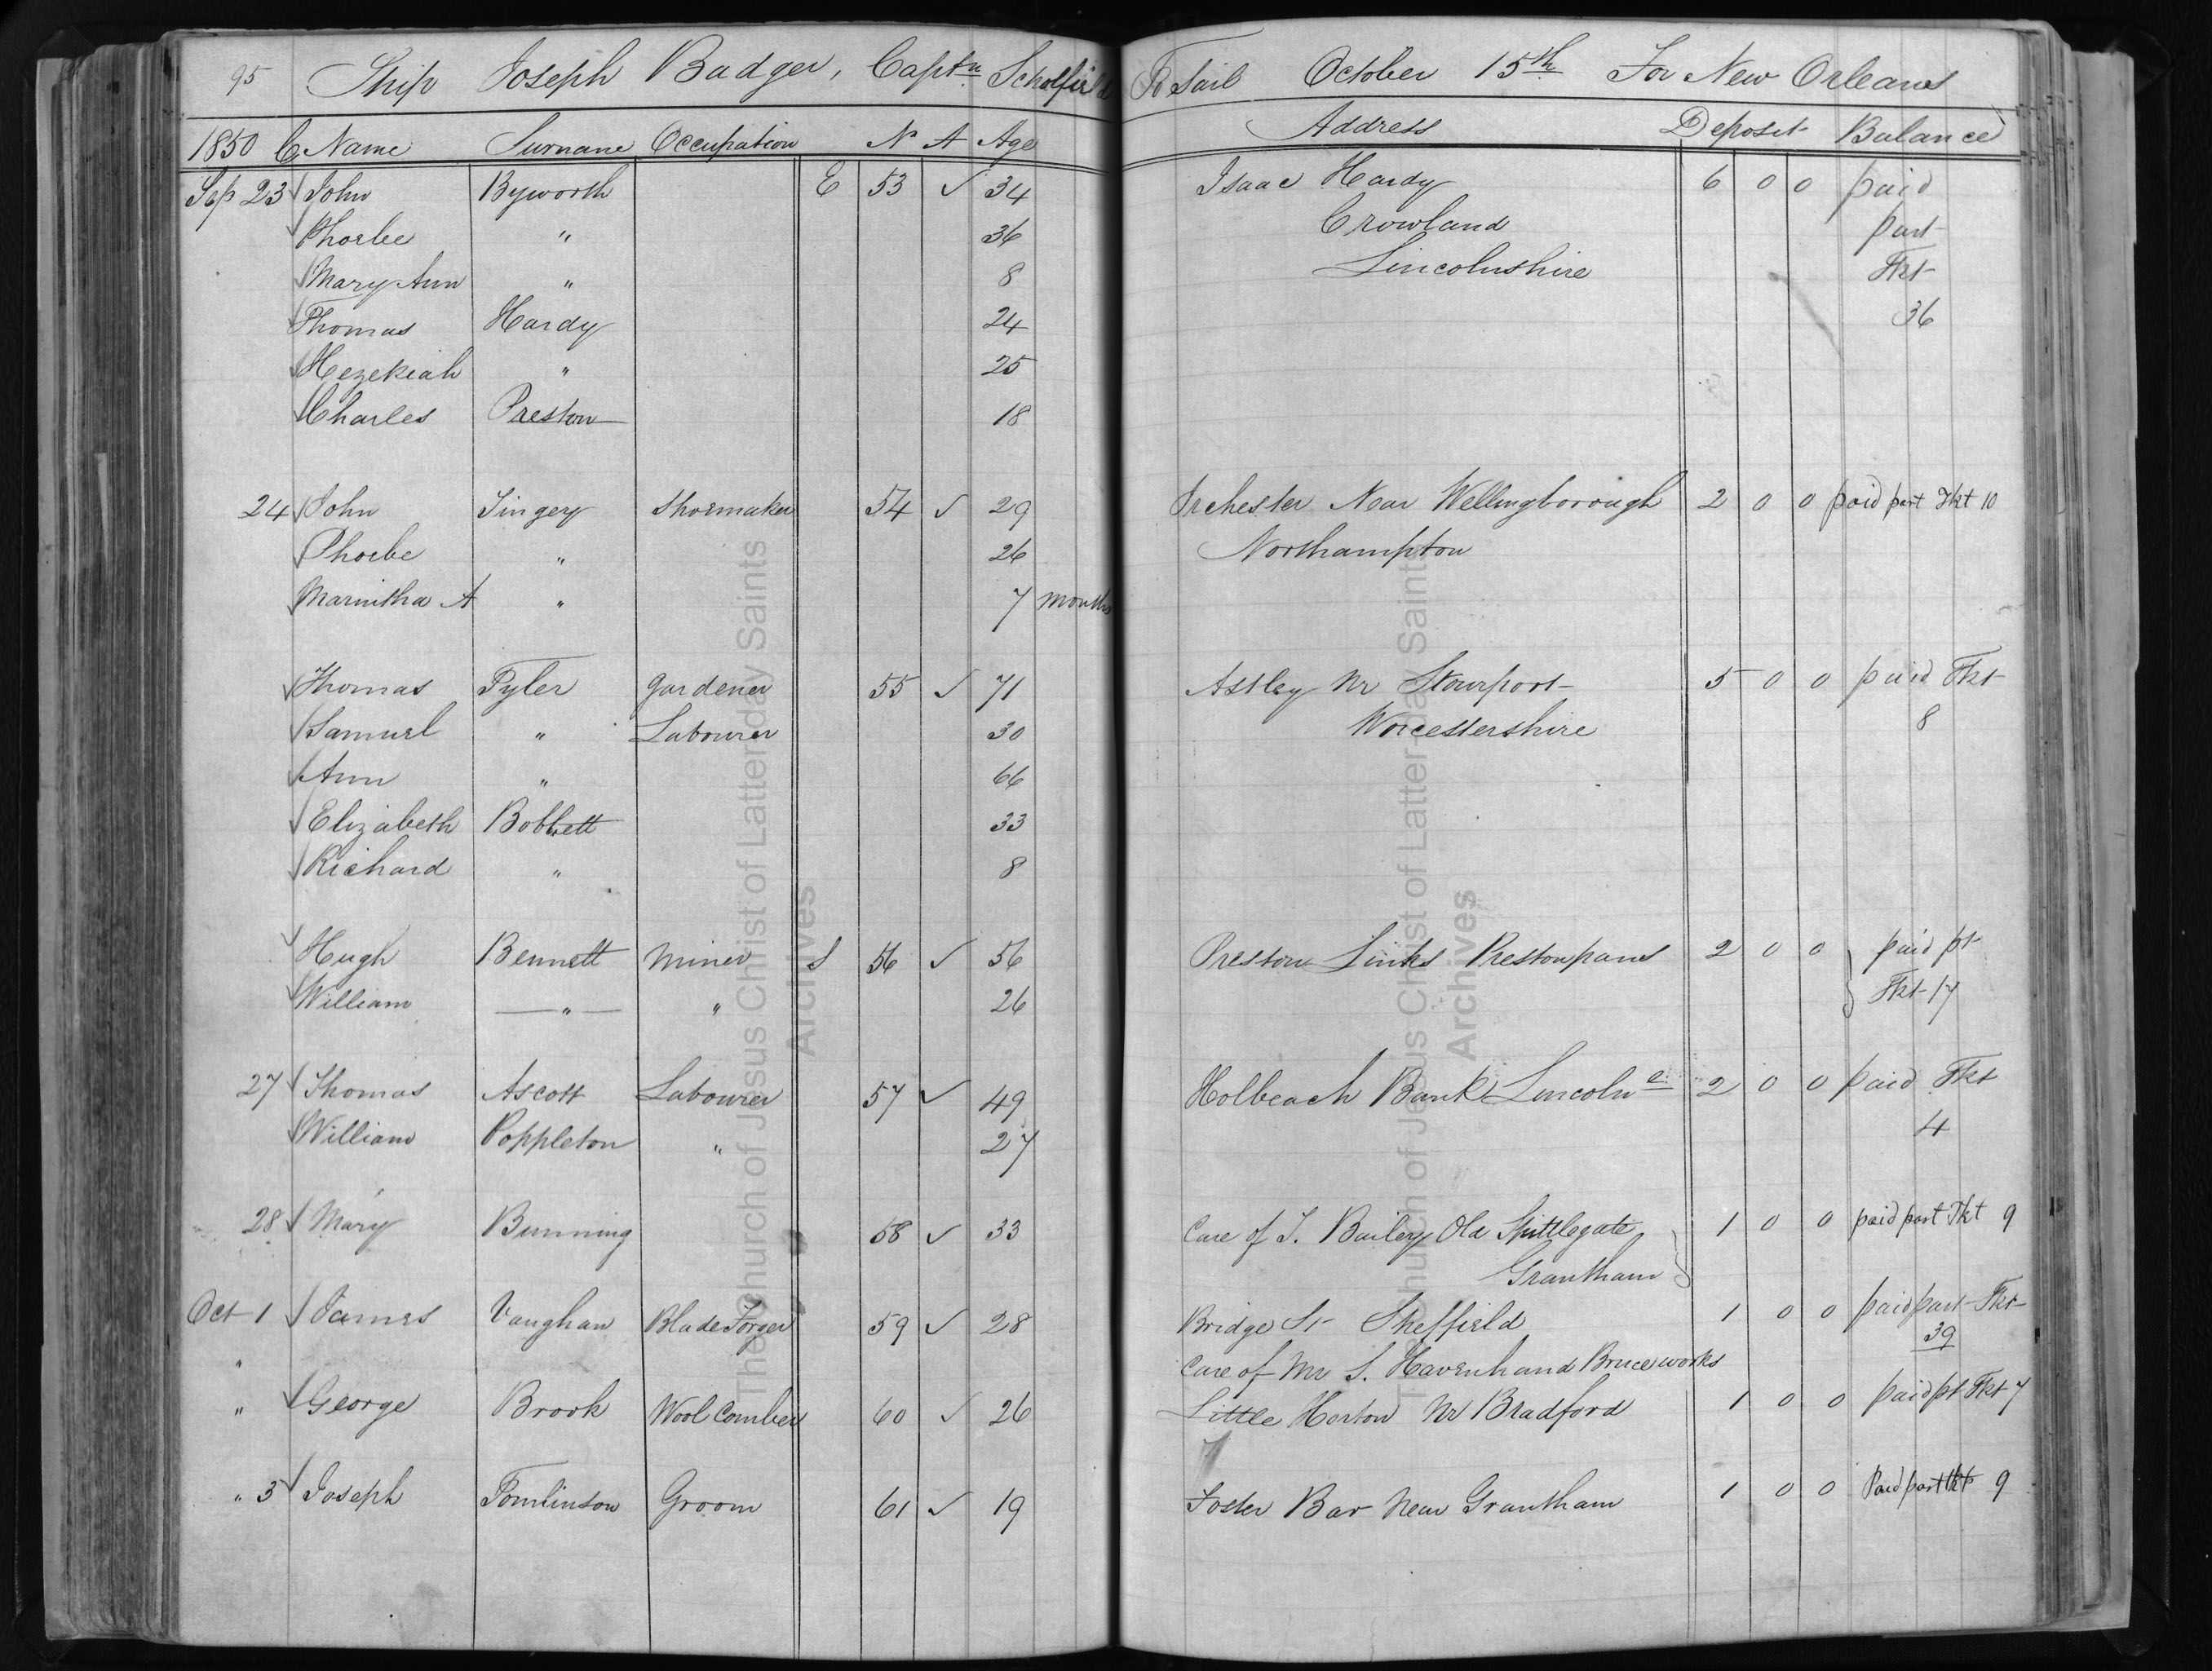 95 Ship Joseph Badger, Captn Scholfield To Sail October 15th For New Orleans
1850 C Name Surname Occupation No A Age Address Deposit Balance
Sep 23 √ John Byworth E 53 √ 34 Isaac Hardy 6 0 0 paid
√ Phoebe " 36 Crowland part
√ Mary Ann " 8 Lincolnshire Tkt
√ Thomas Hardy 24 36
√ Hezekiah " 25
√ Charles Preston 18
24 √ John Tingey Shoemaker 54 √ 29 Irchester Near Wellingborough 2 0 0 paid part Tkt 10
√ Phoebe " 26 Northampton
√ Marintha A " 7 months
√ Thomas Tyler Gardener 55 √ 71 Astley Nr Stourport 5 0 0 paid Tkt
√ Samuel " Labourer 30 Worcestershire 8
√ Ann " 66
√ Elizabeth Bobbett 33
√ Richard " 8
√ Hugh Bennett Miner S 56 √ 56 Preston Links Prestonpans 2 0 0 } paid pt
√ William — " — " 26 Tkt 17
27 √ Thomas Ascott Labourer 57 √ 49 Holbeach Bank Lincolne 2 0 0 paid Tkt
√ William Poppleton " 27 4
28 √ Mary Bunning 58 √ 33 Care of J. Bailey Old Spittlegate 1 0 0 paid part Tkt 9
Grantham }
Oct 1 √ James Vaughan Blade Forger 59 √ 28 Bridge St Sheffield 1 0 0 paid part Tkt
" Care of Mr S. Havenhand Bruceworks 39
" √ George Brook Wool Comber 60 √ 26 Little Horton Nr Bradford 1 0 0 paid pt Tkt 7
" 3 √ Joseph Tomlinson Groom 61 √ 19 Foster Bar Near Grantham 1 0 0 Paid part tkt 9
The Church of Jesus Christ of Latter-day Saints
Archives
The Church of Jesus Christ of Latter-day Saints
Archives